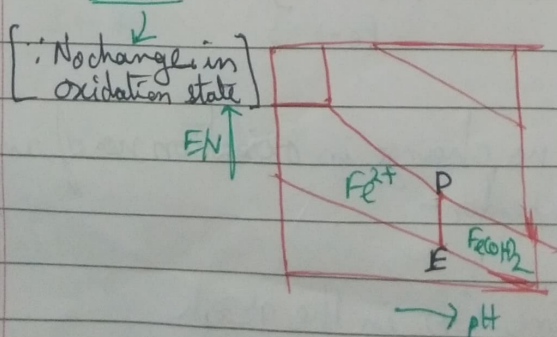 [∵ No change in
oxidation state]
EN
Fe2+
D
Fe(OH)2
E
→ pH